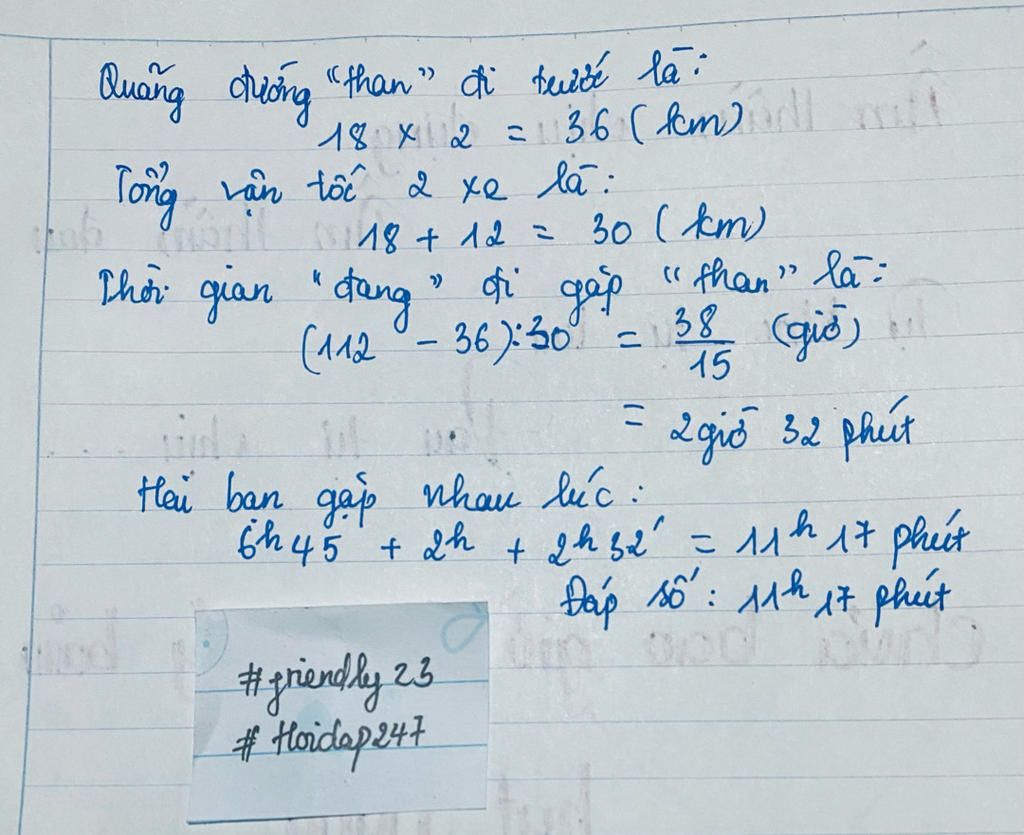 Quãng đường "than" đi trước là:
18 x 2 = 36 (km)
Tổng vận tốc 2 xe là:
18 + 12 = 30 (km)
Thời gian "đang" đi gặp "than" là:
(112 - 36):30 = 38/15 (giờ)
= 2giờ 32 phút
Hai bạn gặp nhau lúc:
6h45 + 2h + 2h32' = 11h17 phút
Đáp số: 11h17 phút
#friendly23
#Hoidap247